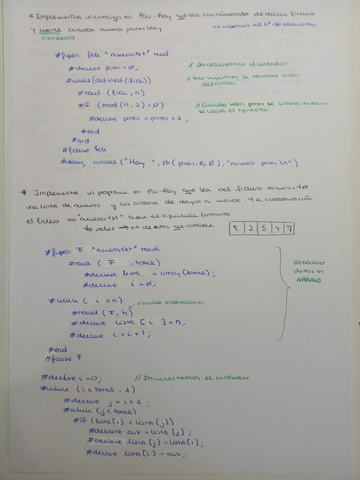 * Implementa un código en Pov-Ray que lea los números del fichero números
y cuente cuantos números pares hay
#fopen fich "numeros.txt" read
#declare pares = 0;
// Inicializamos el contador
#while (defined (fich))
#read (fich, n)
#if (mod (n, 2) = 0)
#declare pares = pares + 1;
#end
#end
#fclose fich
#debug concat ("Hay ", str (pares, 0, 0), "numeros pares \n")
* Implementa un programa en Pov-Ray que lea del fichero numeros.txt
una lista de números y los ordene de mayor a menor. A continuación
el fichero de "numeros.txt" tiene el siguiente formato
1º valor → nº de datos que contiene
8 2 5 4 7
#fopen F "numeros.txt" read
#read (F, total)
#declare lista = array[total];
#declare i = 0;
Almacenar
datos en
ARRAY
#while (i < n)
#read (F, n)
#declare lista [i] = n;
#declare i = i + 1;
#end
#fclose F
#declare i = 0; // Inicializamos el contador
#while (i < total - 1)
#declare j = i + 1;
#while (j < total)
#if (lista[i] < lista[j])
#declare aux = lista[j];
#declare lista[j] = lista[i];
#declare lista[i] = aux;